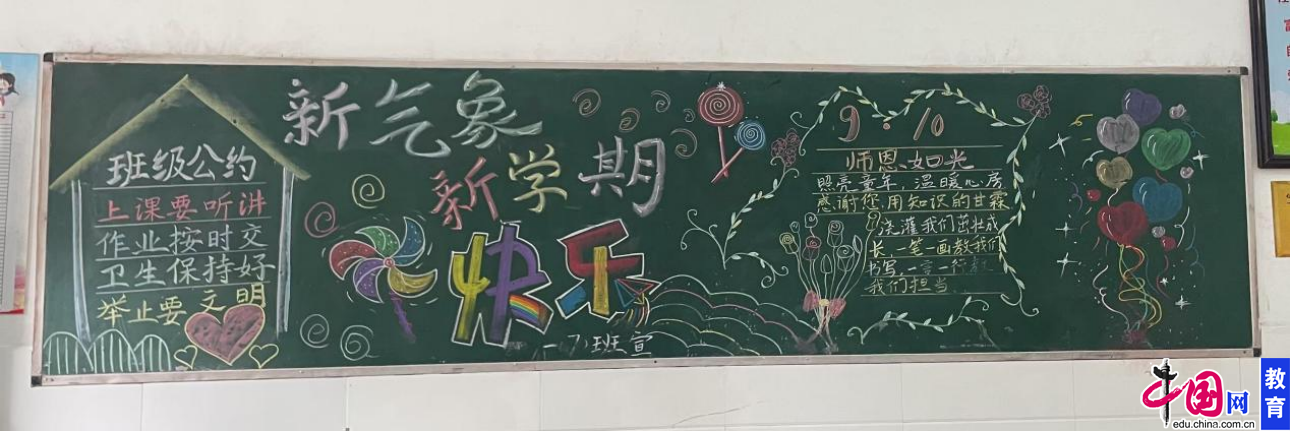 班级公约
上课要听讲
作业按时交
卫生保持好
举止要文明
新气象
新学期
快乐
班宣
9·10
师恩如光
照亮童年，温暖心房
感谢您用知识的甘霖
浇灌我们茁壮成
长，一笔一画教我们
书写，一言一行教
我们担当
中国网
edu.china.com.cn
教育